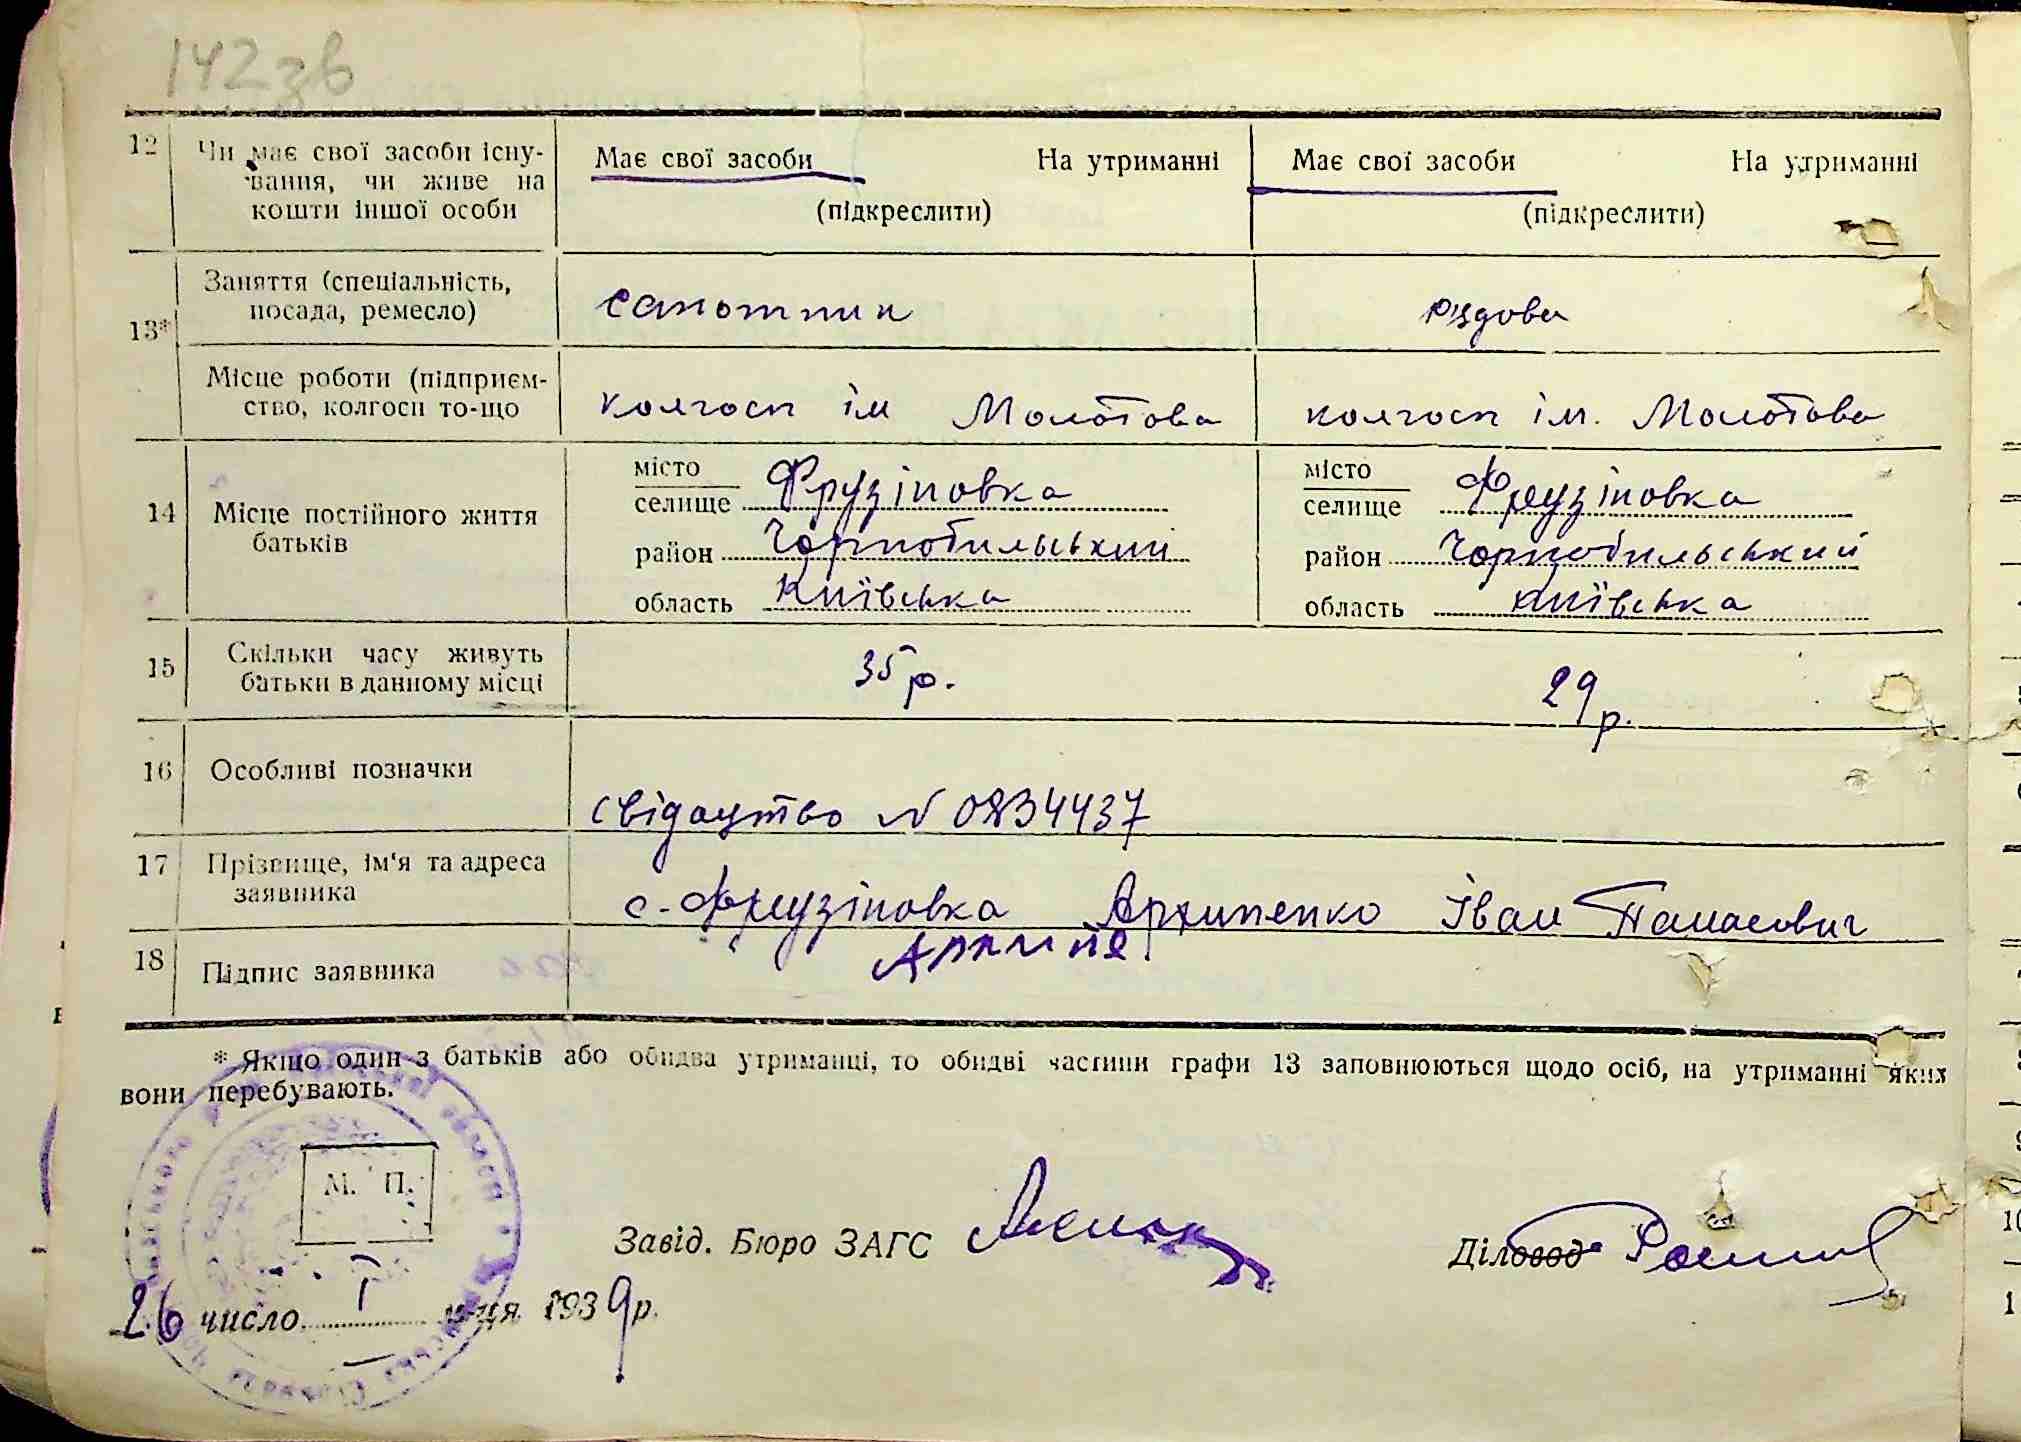 142зв
12 Чи має свої засоби існу-
вання, чи живе на
кошти іншої особи
Має свої засоби На утриманні
(підкреслити)
Має свої засоби На утриманні
(підкреслити)
13* Заняття (спеціальність,
посада, ремесло)
сапотник
рядова
Місце роботи (підприєм-
ство, колгосп то-що
колгосп ім Молотова
колгосп ім. Молотова
14 Місце постійного життя
батьків
місто
селище Фрузіновка
район Чорнобильський
область Київська
місто
селище Фрузіновка
район Чорнобильський
область Київська
15 Скільки часу живуть
батьки в данному місці
35 р.
29 р.
16 Особливі позначки
свідоцтво № 0834437
17 Прізвище, ім'я та адреса
заявника
с. Фрузіновка Архипенко Іван Панасович
18 Підпис заявника
* Якщо один з батьків або обидва утриманці, то обидві частини графи 13 заповнюються щодо осіб, на утриманні яких
вони перебувають.
М. П.
Завід. Бюро ЗАГС
Діловод
26 число І м-ця 1939р.